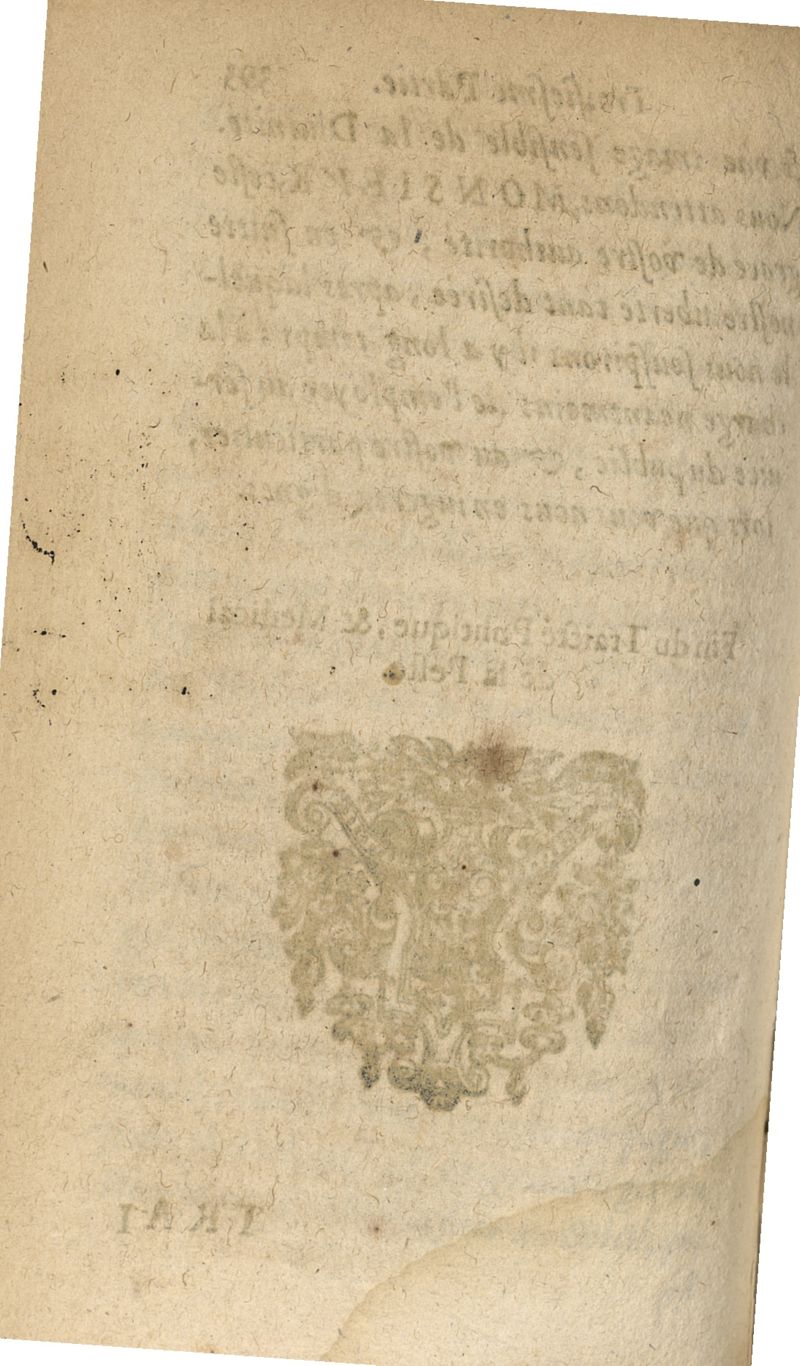 Troisiesme Partie. 393
& vne image sensible de la Diuinité.
Nous attendons, MONSIEVR, ceste
grace de vostre authorité, & en suitte
nostre liberté tant desirée, apres laquel-
le nous souspirons il y a long temps: à la
charge neantmoins de l'employer au ser-
uice du public, & au vostre particulier,
lors que vous nous en iugerez dignes.
Fin du Traicté Politique, & Medical
de la Peste.
TRAI